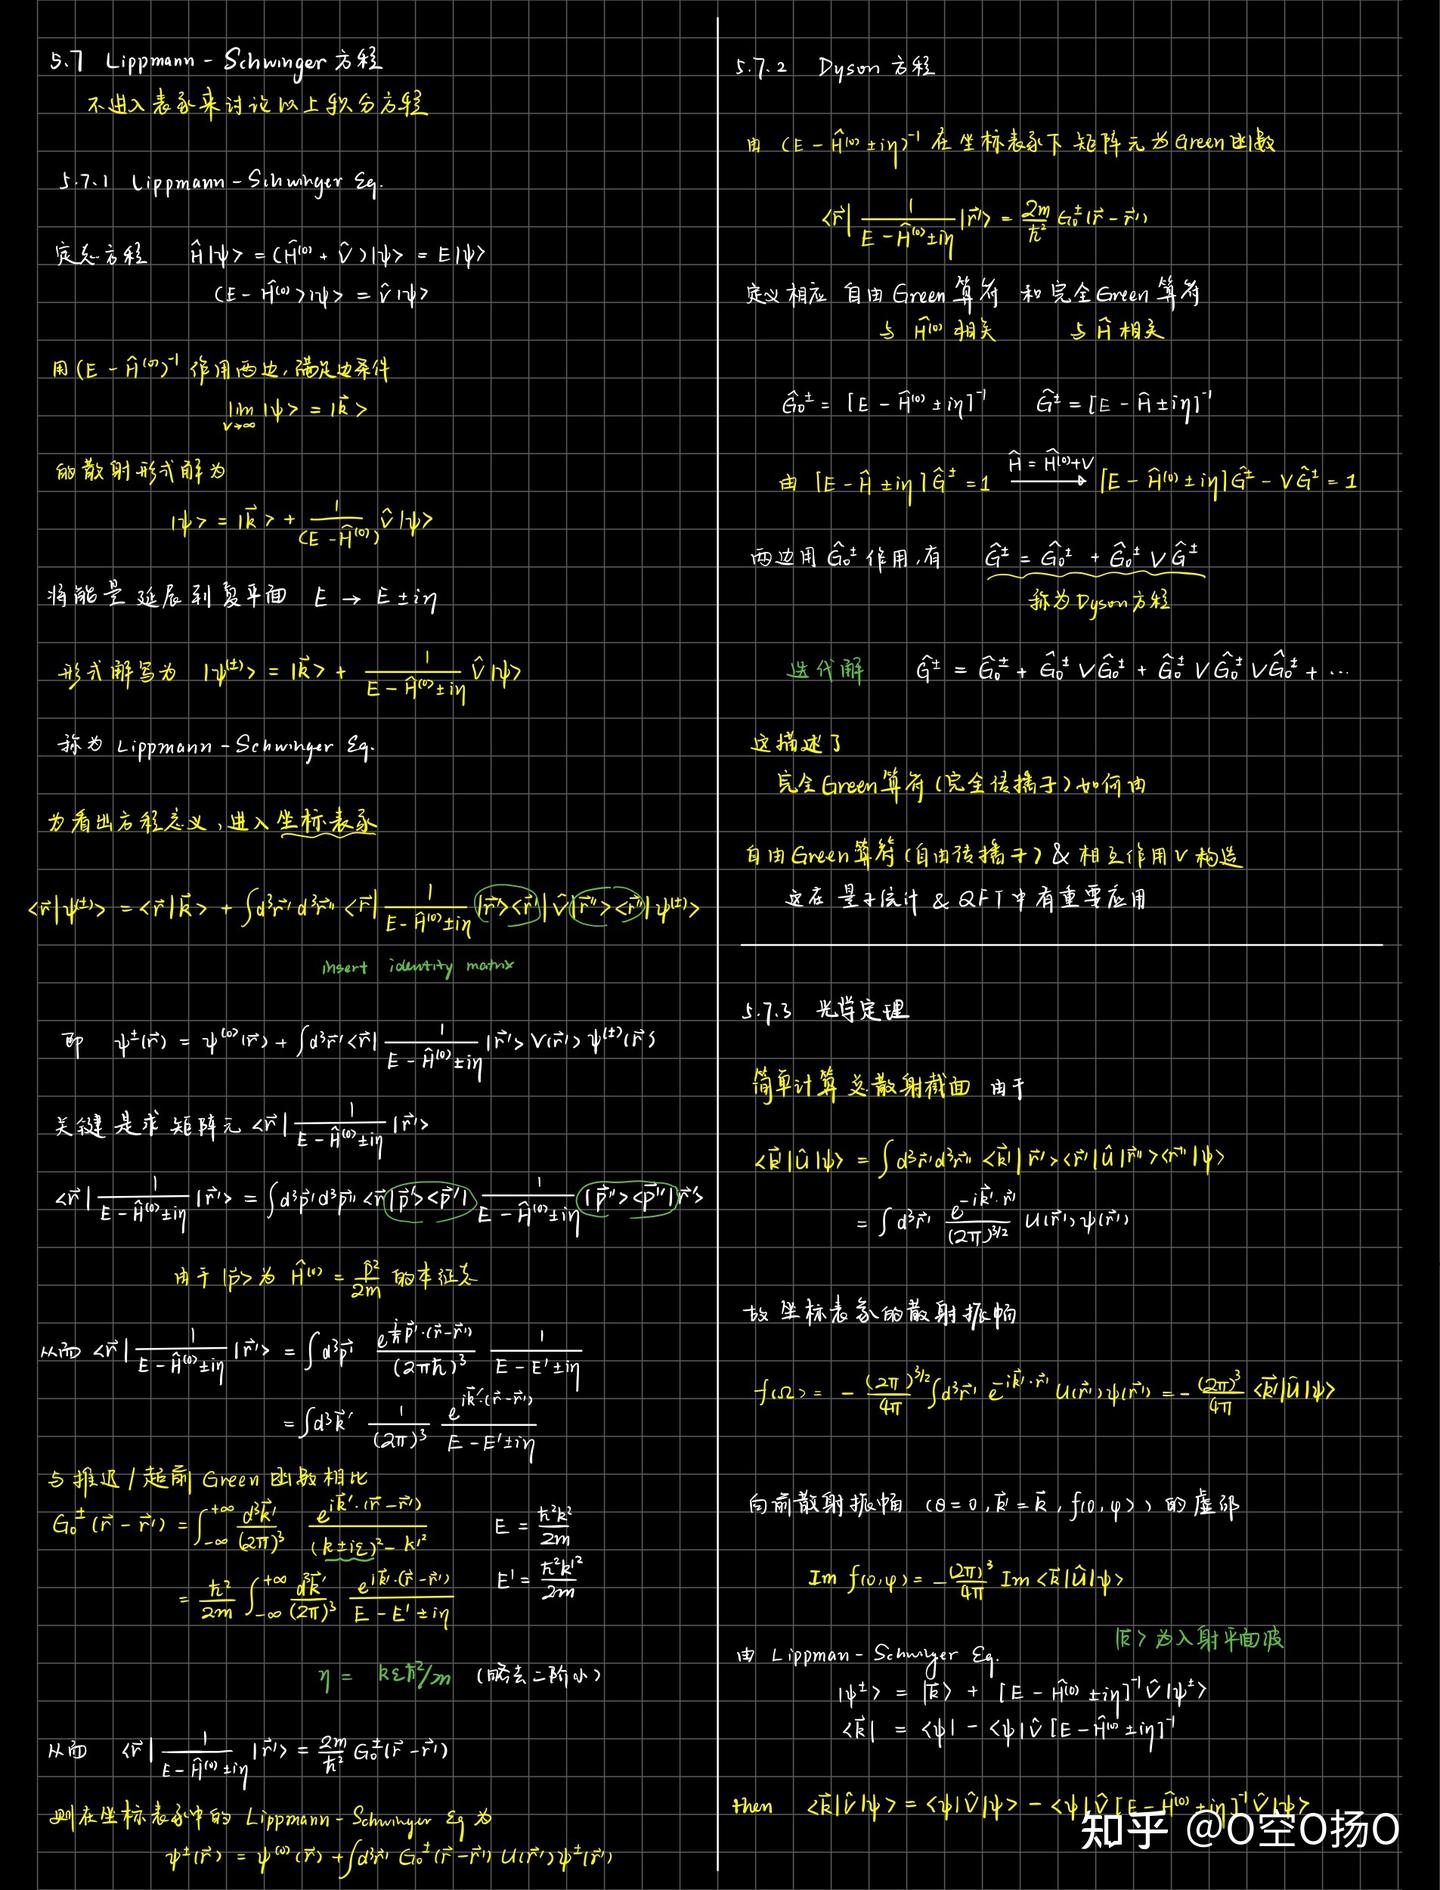 5.7 Lippmann - Schwinger 方程
不进入表象来讨论以上积分方程
5.7.1 Lippmann - Schwinger Eq.
定态方程 Ĥ|ψ> = (Ĥ⁽⁰⁾ + V̂)|ψ> = E|ψ>
(E - Ĥ⁽⁰⁾)|ψ> = V̂|ψ>
用 (E - Ĥ⁽⁰⁾)⁻¹ 作用两边, 满足边条件
lim_{V→∞} |ψ> = |k⃗>
的散射形式解为
|ψ> = |k⃗> + 1/(E - Ĥ⁽⁰⁾) V̂|ψ>
将能量延展到复平面 E → E ± iη
形式解写为 |ψ⁽±⁾> = |k⃗> + 1/(E - Ĥ⁽⁰⁾ ± iη) V̂|ψ>
称为 Lippmann - Schwinger Eq.
为看出方程意义, 进入坐标表象
<r⃗|ψ⁽±⁾> = <r⃗|k⃗> + ∫d³r⃗' d³r⃗'' <r⃗| 1/(E - Ĥ⁽⁰⁾ ± iη) |r⃗'><r⃗'|V̂|r⃗''><r⃗''|ψ⁽±⁾>
insert identity matrix
即 ψ±(r⃗) = ψ⁽⁰⁾(r⃗) + ∫d³r⃗' <r⃗| 1/(E - Ĥ⁽⁰⁾ ± iη) |r⃗'> V(r⃗') ψ⁽±⁾(r⃗')
关键是求矩阵元 <r⃗| 1/(E - Ĥ⁽⁰⁾ ± iη) |r⃗'>
<r⃗| 1/(E - Ĥ⁽⁰⁾ ± iη) |r⃗'> = ∫d³p⃗' d³p⃗'' <r⃗|p⃗'><p⃗'| 1/(E - Ĥ⁽⁰⁾ ± iη) |p⃗''><p⃗''|r⃗'>
由于 |p⃗> 为 Ĥ⁽⁰⁾ = p̂²/2m 的本征态
从而 <r⃗| 1/(E - Ĥ⁽⁰⁾ ± iη) |r⃗'> = ∫d³p⃗' e^{i/ħ p⃗'·(r⃗-r⃗')}/(2πħ)³ 1/(E - E' ± iη)
= ∫d³k⃗' 1/(2π)³ e^{ik⃗'·(r⃗-r⃗')}/(E - E' ± iη)
与推迟/超前 Green 函数相比
G₀±(r⃗ - r⃗') = ∫_{-∞}^{+∞} d³k⃗'/(2π)³ e^{ik⃗'·(r⃗-r⃗')}/((k ± iε)² - k'²) E = ħ²k²/2m
= ħ²/2m ∫_{-∞}^{+∞} d³k⃗'/(2π)³ e^{ik⃗'·(r⃗-r⃗')}/(E - E' ± iη) E' = ħ²k'²/2m
η = kεħ²/m (略去二阶小)
从而 <r⃗| 1/(E - Ĥ⁽⁰⁾ ± iη) |r⃗'> = 2m/ħ² G₀±(r⃗ - r⃗')
则在坐标表象中的 Lippmann - Schwinger Eq 为
ψ±(r⃗) = ψ⁽⁰⁾(r⃗) + ∫d³r⃗' G₀±(r⃗ - r⃗') U(r⃗') ψ±(r⃗')
5.7.2 Dyson 方程
由 (E - Ĥ⁽⁰⁾ ± iη)⁻¹ 在坐标表象下矩阵元为 Green 函数
<r⃗| 1/(E - Ĥ⁽⁰⁾ ± iη) |r⃗'> = 2m/ħ² G₀±(r⃗ - r⃗')
定义相应 自由 Green 算符 和 完全 Green 算符
与 Ĥ⁽⁰⁾ 相关 与 Ĥ 相关
Ĝ₀± = [E - Ĥ⁽⁰⁾ ± iη]⁻¹ Ĝ± = [E - Ĥ ± iη]⁻¹
Ĥ = Ĥ⁽⁰⁾ + V
由 [E - Ĥ ± iη] Ĝ± = 1 → [E - Ĥ⁽⁰⁾ ± iη] Ĝ± - VĜ± = 1
两边用 Ĝ₀± 作用, 有 Ĝ± = Ĝ₀± + Ĝ₀± V Ĝ±
称为 Dyson 方程
迭代解 Ĝ± = Ĝ₀± + Ĝ₀± V Ĝ₀± + Ĝ₀± V Ĝ₀± V Ĝ₀± + ⋯
这描述了
完全 Green 算符 (完全传播子) 如何由
自由 Green 算符 (自由传播子) & 相互作用 V 构造
这在 量子统计 & QFT 中有重要应用
5.7.3 光学定理
简单计算总散射截面 由于
<k⃗'|Û|ψ> = ∫d³r⃗' d³r⃗'' <k⃗'|r⃗'><r⃗'|Û|r⃗''><r⃗''|ψ>
= ∫d³r⃗' e^{-ik⃗'·r⃗'}/(2π)^{3/2} U(r⃗') ψ(r⃗')
故坐标表象的散射振幅
f(Ω) = - (2π)^{3/2}/4π ∫d³r⃗' e^{-ik⃗'·r⃗'} U(r⃗') ψ(r⃗') = - (2π)³/4π <k⃗'|Û|ψ>
向前散射振幅 (θ = 0, k⃗' = k⃗, f(0,φ)) 的虚部
Im f(0,φ) = - (2π)³/4π Im <k⃗|Û|ψ>
|k⃗> 为入射平面波
由 Lippman - Schwinger Eq.
|ψ±> = |k⃗> + [E - Ĥ⁽⁰⁾ ± iη]⁻¹ V̂|ψ±>
<k⃗| = <ψ| - <ψ|V̂ [E - Ĥ⁽⁰⁾ ± iη]⁻¹
then <k⃗|V̂|ψ> = <ψ|V̂|ψ> - <ψ|V̂ [E - Ĥ⁽⁰⁾ ± iη]⁻¹ V̂|ψ>
知乎 @O空O扬O